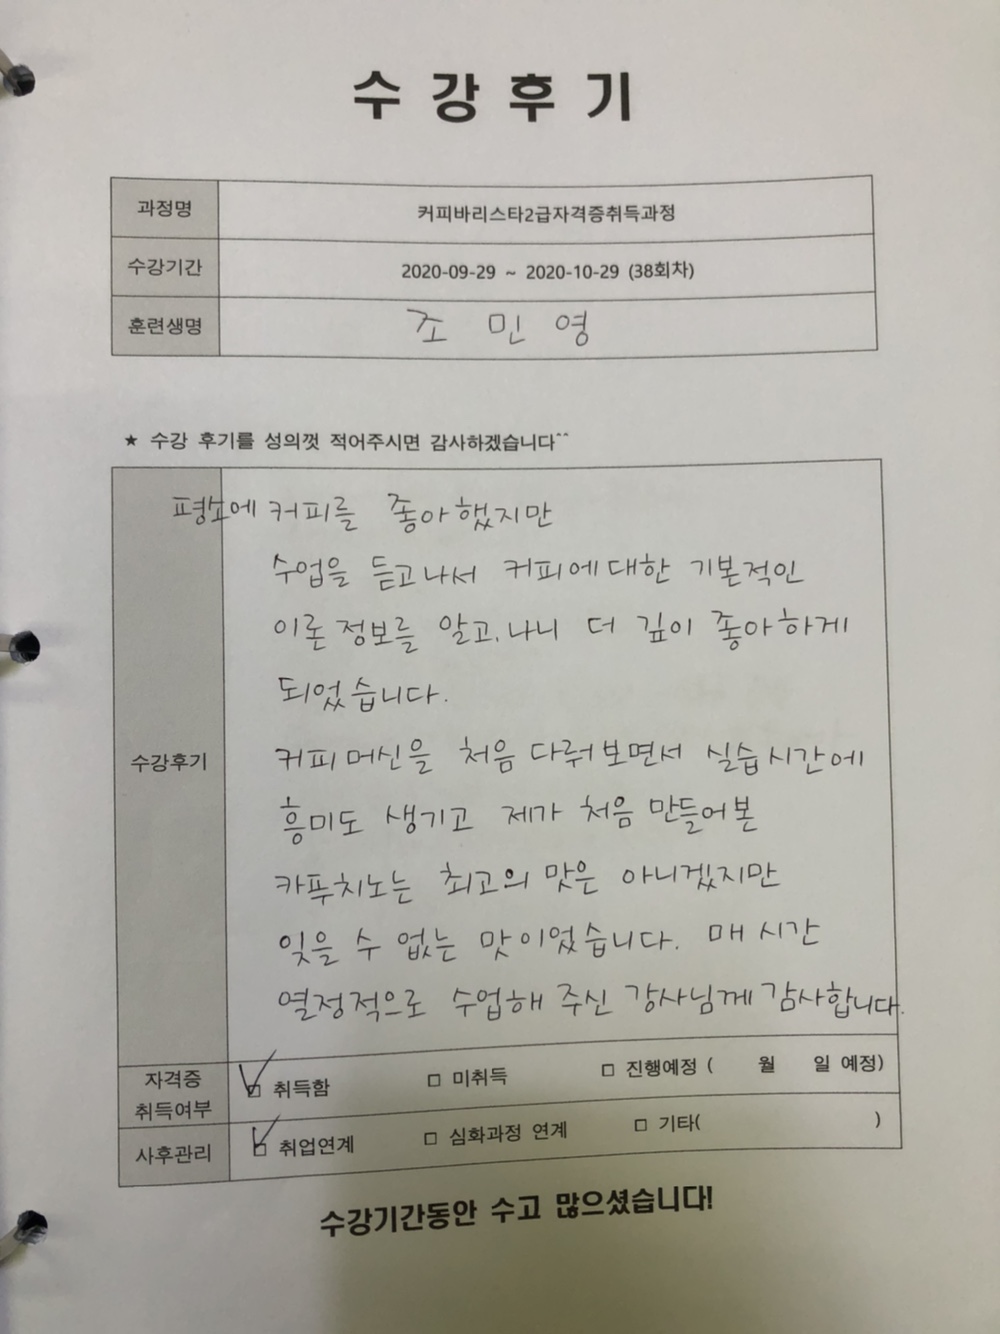 수강후기
과정명 커피바리스타2급자격증취득과정
수강기간 2020-09-29 ~ 2020-10-29 (38회차)
훈련생명 조 민 영
★ 수강 후기를 성의껏 적어주시면 감사하겠습니다^^
수강후기
평소에 커피를 좋아했지만
수업을 듣고나서 커피에대한 기본적인
이론정보를 알고나니 더 깊이 좋아하게
되었습니다.
커피머신을 처음 다뤄보면서 실습시간에
흥미도 생기고 제가 처음 만들어본
카푸치노는 최고의 맛은 아니겠지만
잊을 수 없는 맛이었습니다. 매 시간
열정적으로 수업해 주신 강사님께 감사합니다.
자격증 취득여부 ☑ 취득함 □ 미취득 □ 진행예정 ( 월 일 예정)
사후관리 ☑ 취업연계 □ 심화과정 연계 □ 기타( )
수강기간동안 수고 많으셨습니다!